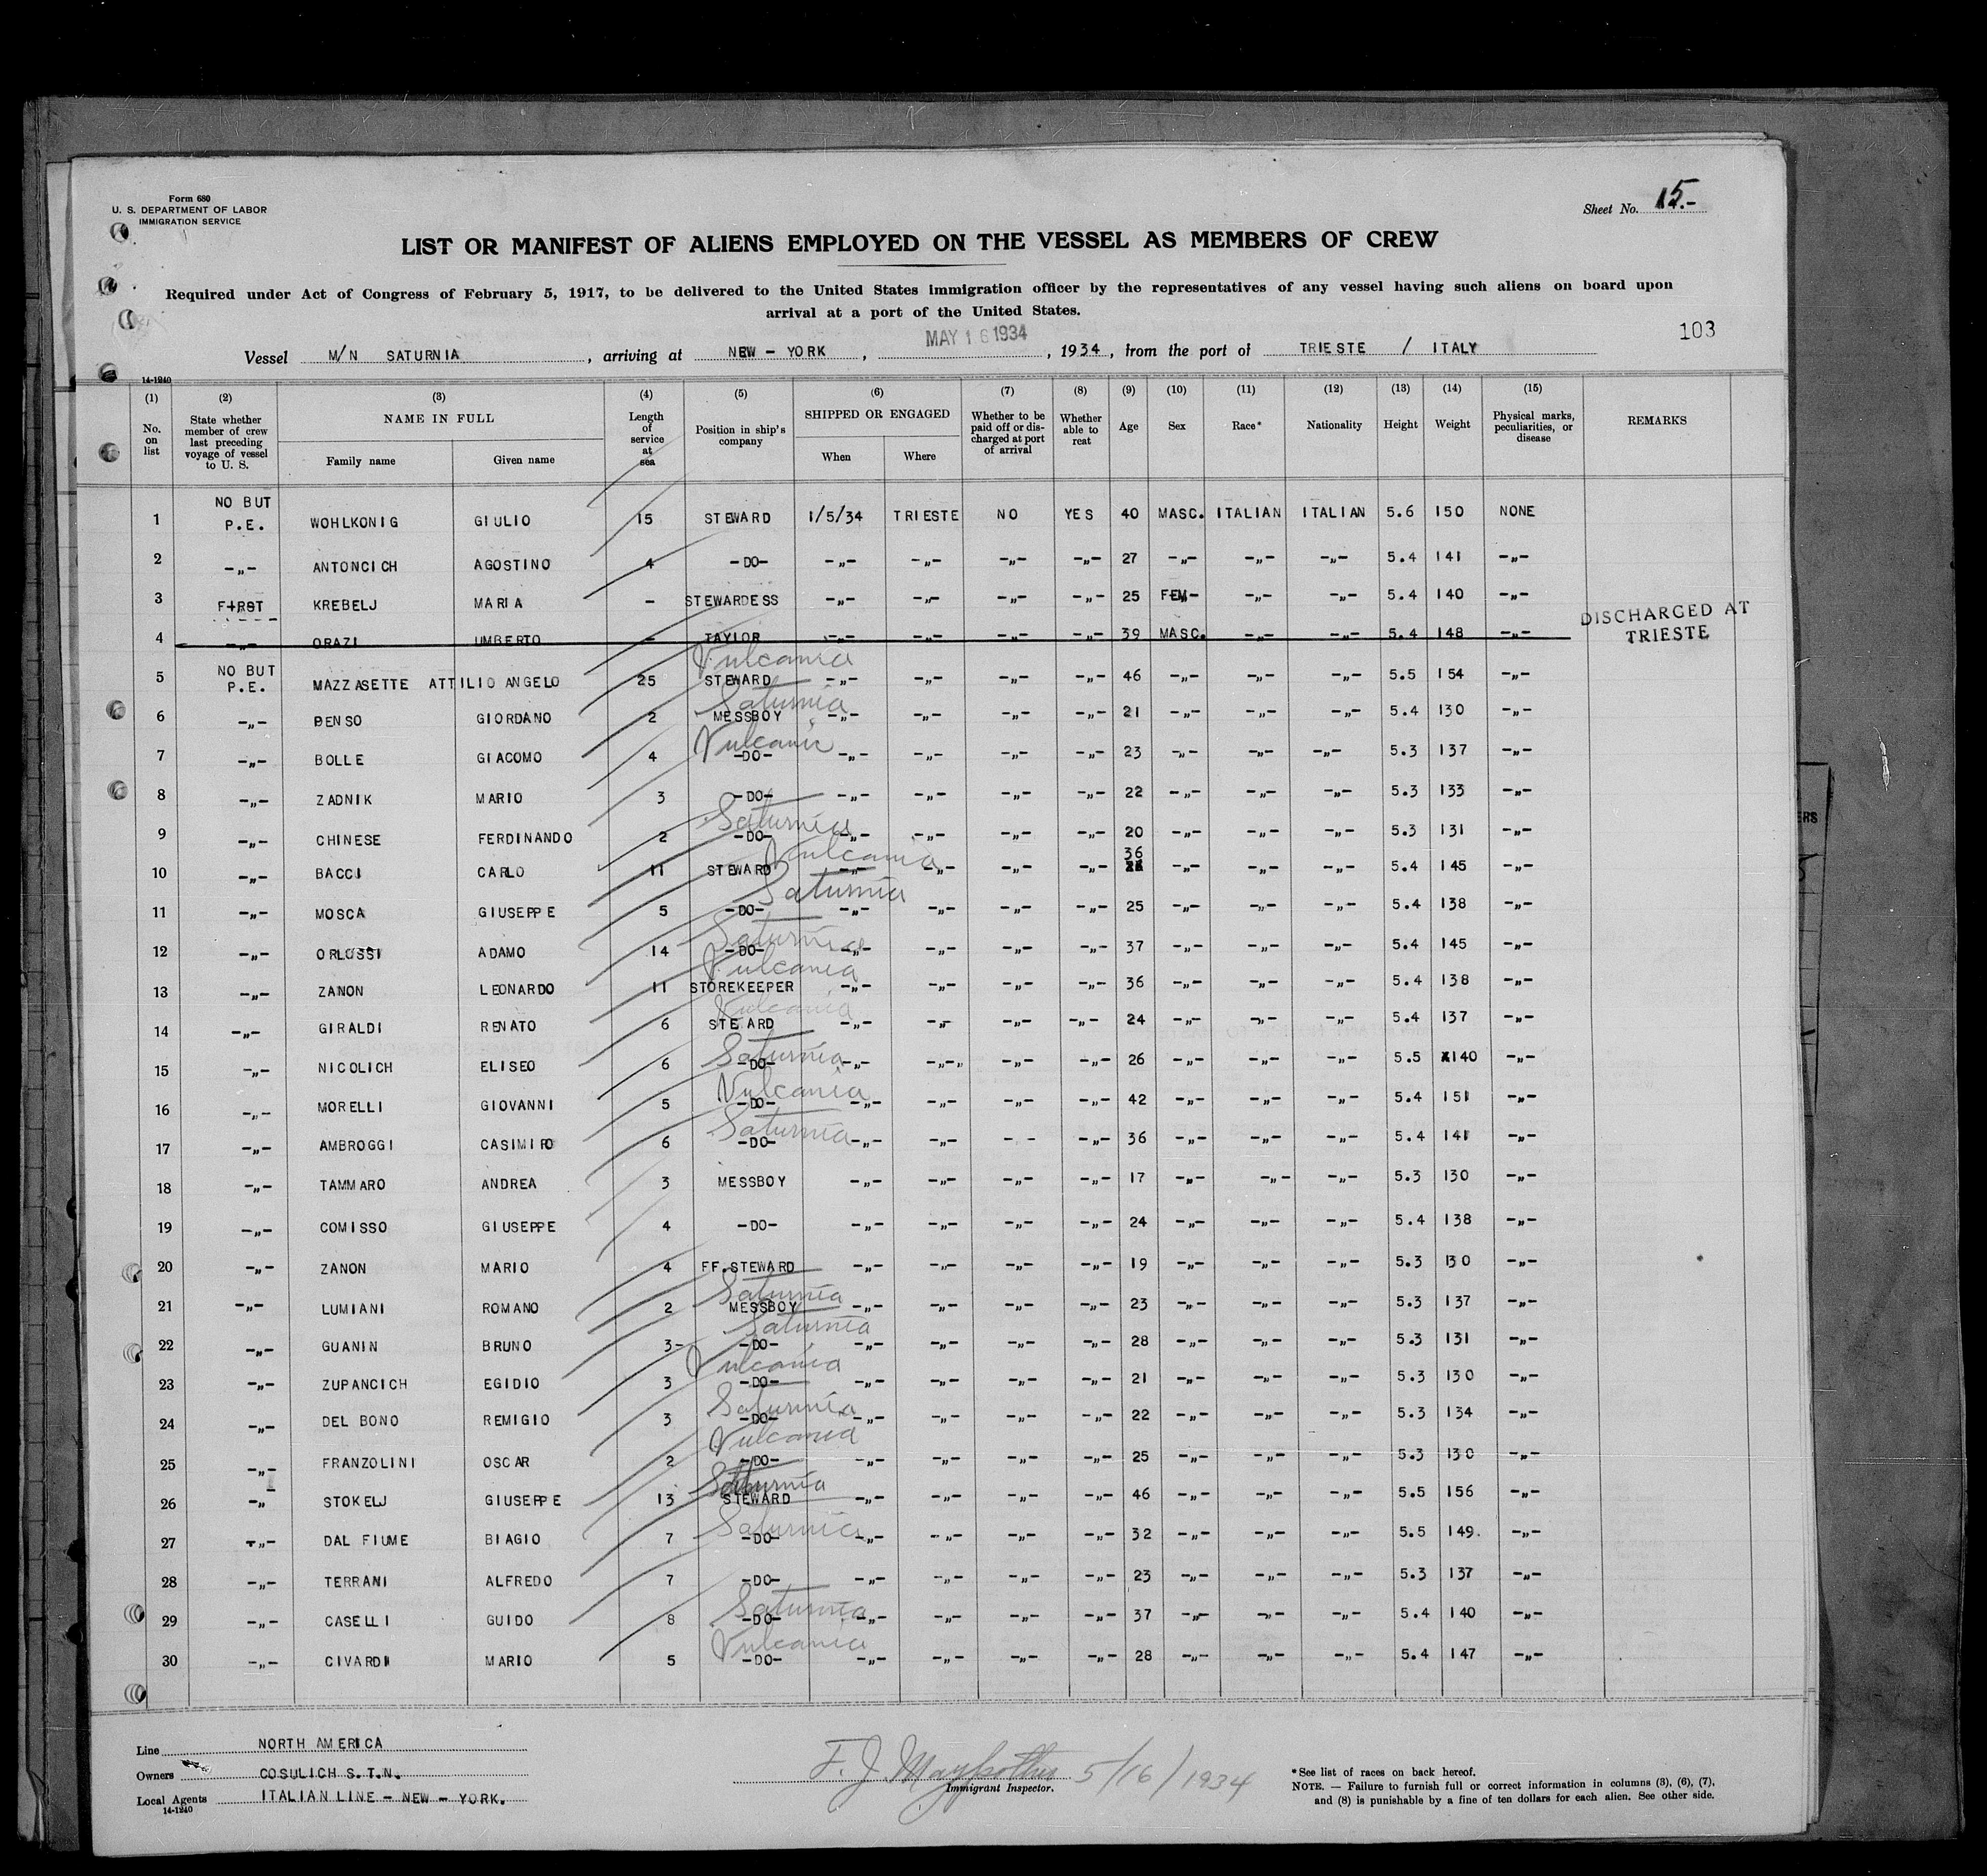 Form 680
U. S. DEPARTMENT OF LABOR
IMMIGRATION SERVICE
Sheet No. 15.-
LIST OR MANIFEST OF ALIENS EMPLOYED ON THE VESSEL AS MEMBERS OF CREW
Required under Act of Congress of February 5, 1917, to be delivered to the United States immigration officer by the representatives of any vessel having such aliens on board upon
arrival at a port of the United States.
103
MAY 16 1934
Vessel M/N SATURNIA, arriving at NEW-YORK, , 1934, from the port of TRIESTE / ITALY
14-1240
(1) (2) (3) (4) (5) (6) (7) (8) (9) (10) (11) (12) (13) (14) (15)
No. on list State whether member of crew last preceding voyage of vessel to U. S. NAME IN FULL Family name Given name Length of service at sea Position in ship's company SHIPPED OR ENGAGED When Where Whether to be paid off or discharged at port of arrival Whether able to read Age Sex Race* Nationality Height Weight Physical marks, peculiarities, or disease REMARKS
1 NO BUT P.E. WOHLKONIG GIULIO 15 STEWARD 1/5/34 TRIESTE NO YES 40 MASC. ITALIAN ITALIAN 5.6 150 NONE
2 -"- ANTONCICH AGOSTINO 4 -DO- -"- -"- -"- -"- 27 -"- -"- -"- 5.4 141 -"-
3 FIRST KREBELJ MARIA - STEWARDESS -"- -"- -"- -"- 25 FEM- -"- -"- 5.4 140 -"-
4 -"- ORAZI UMBERTO - TAYLOR -"- -"- -"- -"- 39 MASC. -"- -"- 5.4 148 -"- DISCHARGED AT TRIESTE
Vulcania
5 NO BUT P.E. MAZZASETTE ATTILIO ANGELO 25 STEWARD -"- -"- -"- -"- 46 -"- -"- -"- 5.5 154 -"-
Saturnia
6 -"- DENSO GIORDANO 2 MESSBOY -"- -"- -"- -"- 21 -"- -"- -"- 5.4 130 -"-
Vulcania
7 -"- BOLLE GIACOMO 4 -DO- -"- -"- -"- -"- 23 -"- -"- -"- 5.3 137 -"-
8 -"- ZADNIK MARIO 3 -DO- -"- -"- -"- -"- 22 -"- -"- -"- 5.3 133 -"-
Saturnia
9 -"- CHINESE FERDINANDO 2 -DO- -"- -"- -"- -"- 20 -"- -"- -"- 5.3 131 -"-
Vulcania
10 -"- BACCI CARLO 11 STEWARD -"- -"- -"- -"- 36 -"- -"- -"- 5.4 145 -"-
Saturnia
11 -"- MOSCA GIUSEPPE 5 -DO- -"- -"- -"- -"- 25 -"- -"- -"- 5.4 138 -"-
Saturnia
12 -"- ORLOSSI ADAMO 14 -DO- -"- -"- -"- -"- 37 -"- -"- -"- 5.4 145 -"-
Vulcania
13 -"- ZANON LEONARDO 11 STOREKEEPER -"- -"- -"- -"- 36 -"- -"- -"- 5.4 138 -"-
Vulcania
14 -"- GIRALDI RENATO 6 STE ARD -"- -"- -"- -"- 24 -"- -"- -"- 5.4 137 -"-
Saturnia
15 -"- NICOLICH ELISEO 6 -DO- -"- -"- -"- -"- 26 -"- -"- -"- 5.5 140 -"-
Vulcania
16 -"- MORELLI GIOVANNI 5 -DO- -"- -"- -"- -"- 42 -"- -"- -"- 5.4 151 -"-
Saturnia
17 -"- AMBROGGI CASIMIRO 6 -DO- -"- -"- - - -"- 36 -"- -"- -"- 5.4 141 -"-
18 -"- TAMMARO ANDREA 3 MESSBOY -"- -"- -"- -"- 17 -"- -"- -"- 5.3 130 -"-
19 -"- COMISSO GIUSEPPE 4 -DO- -"- -"- -"- -"- 24 -"- -"- -"- 5.4 138 -"-
20 -"- ZANON MARIO 4 FF.STEWARD -"- -"- -"- -"- 19 -"- -"- -"- 5.3 130 -"-
Saturnia
21 -"- LUMIANI ROMANO 2 MESSBOY -"- -"- -"- -"- 23 -"- -"- -"- 5.3 137 -"-
Saturnia
22 -"- GUANIN BRUNO 3- -DO- -"- -"- -"- -"- 28 -"- -"- -"- 5.3 131 -"-
Vulcania
23 -"- ZUPANCICH EGIDIO 3 -DO- -"- -"- -"- -"- 21 -"- -"- -"- 5.3 130 -"-
Saturnia
24 -"- DEL BONO REMIGIO 3 -DO- -"- -"- -"- -"- 22 -"- -"- -"- 5.3 134 -"-
Vulcania
25 -"- FRANZOLINI OSCAR 2 -DO- -"- -"- -"- -"- 25 -"- -"- -"- 5.3 130 -"-
Saturnia
26 -" STOKELJ GIUSEPPE 13 STEWARD -"- -"- -"- -"- 46 -"- -"- -"- 5.5 156 -"-
Saturnia
27 -"- DAL FIUME BIAGIO 7 -DO- -"- -"- -"- -"- 32 -"- -"- -"- 5.5 149. -"-
28 -"- TERRANI ALFREDO 7 -DO- -"- -"- -"- -"- 23 -"- -"- -"- 5.3 137 -"-
Saturnia
29 -"- CASELLI GUIDO 8 -DO- -"- -"- -"- -"- 37 -"- -"- -"- 5.4 140 -"-
Vulcania
30 -"- CIVARDI MARIO 5 -DO- -"- -"- -"- -"- 28 -"- -"- -"- 5.4 147 -"-
Line NORTH AMERICA
Owners COSULICH S.T.N.
Local Agents ITALIAN LINE - NEW - YORK.
14-1240
F. J. 5/16/1934
Immigrant Inspector.
*See list of races on back hereof.
NOTE. — Failure to furnish full or correct information in columns (3), (6), (7),
and (8) is punishable by a fine of ten dollars for each alien. See other side.